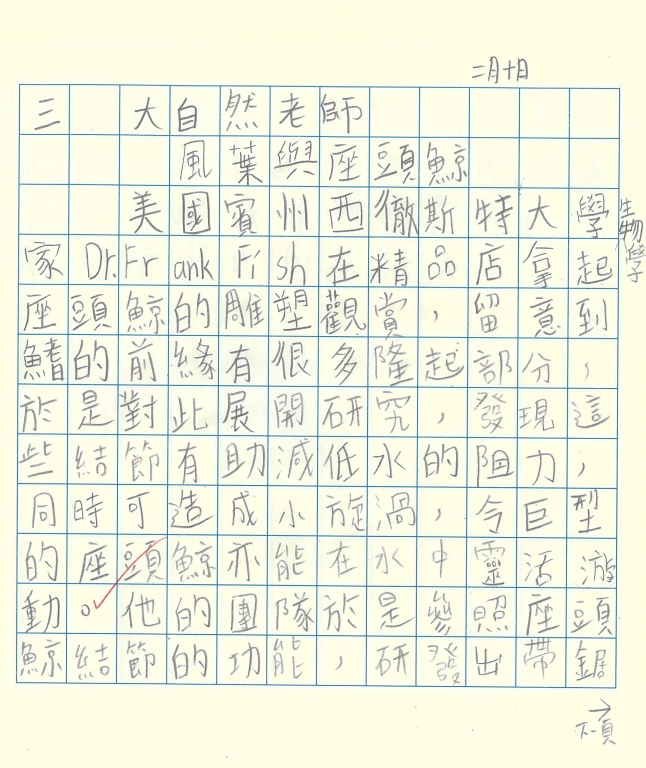 二月十日
三 大自然老師
風葉與座頭鯨
美國賓州西徹斯特大學
生物學
家Dr.Frank Fish在精品店拿起
座頭鯨的雕塑觀賞，留意到
鰭的前緣有很多隆起部分，
於是對此展開研究，發現這
些結節有助減低水的阻力，
同時可造成小旋渦，令巨型
的座頭鯨亦能在水中靈活游
動。他的團隊於是參照座頭
鯨結節的功能，研發出帶鋸
下一頁→